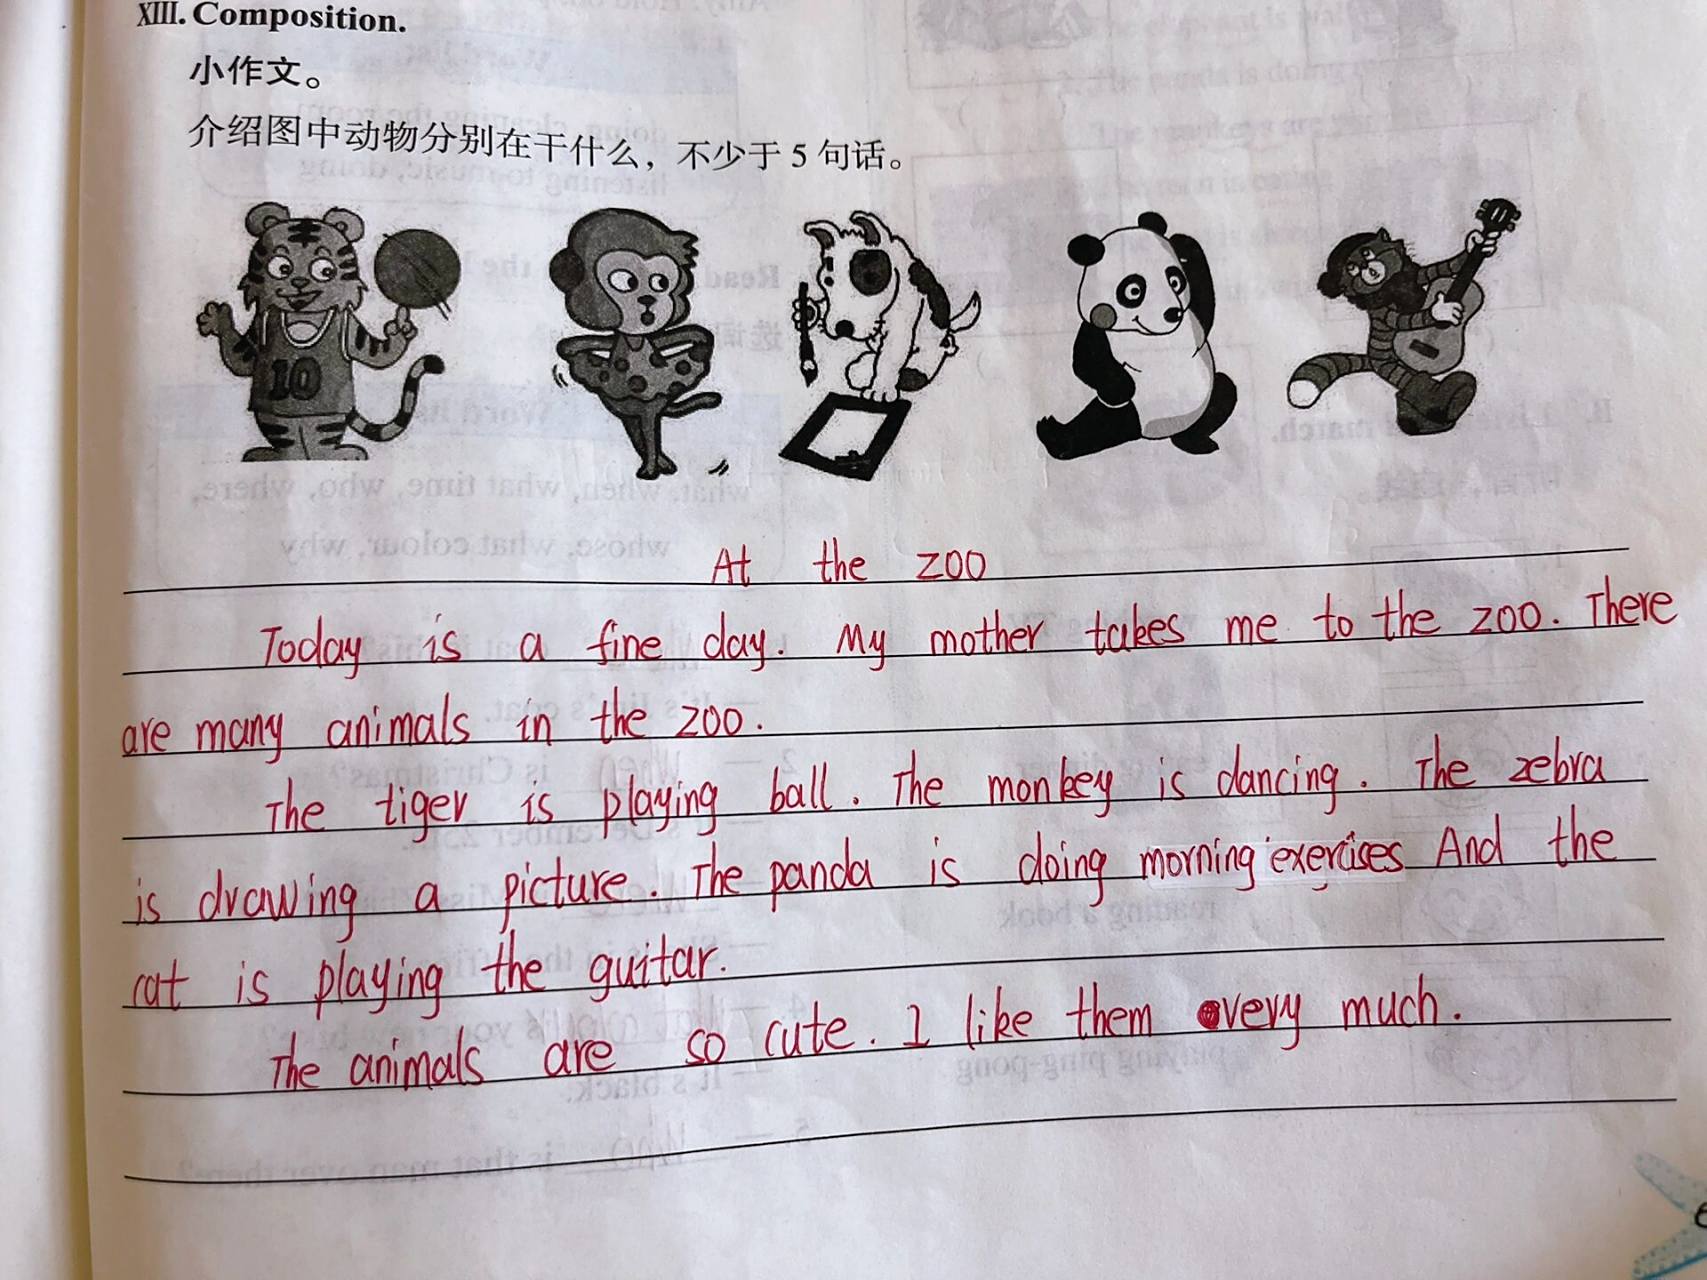 XIII. Composition.
小作文。
介绍图中动物分别在干什么，不少于 5 句话。
10
At the zoo
Today is a fine day. My mother takes me to the zoo. There
are many animals in the zoo.
The tiger is playing ball. The monkey is dancing. The zebra
is drawing a picture. The panda is doing morning exercises And the
cat is playing the guitar.
The animals are so cute. I like them very much.